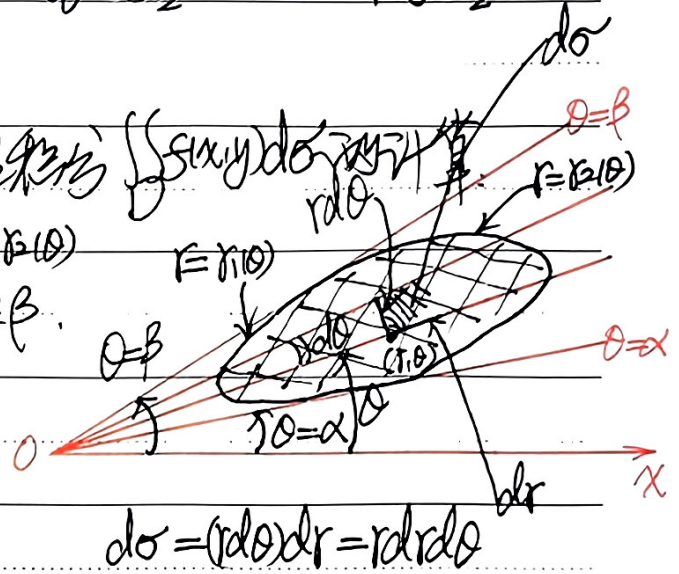 dσ
θ=β
积分 ∬f(x,y)dσ 计算.
D
r=r2(θ)
rdθ
r2(θ)
r=r1(θ)
=β.
θ=β
dθ
(r,θ)
θ=α
θ
θ=α
O
x
dr
dσ=(rdθ)dr=rdrdθ